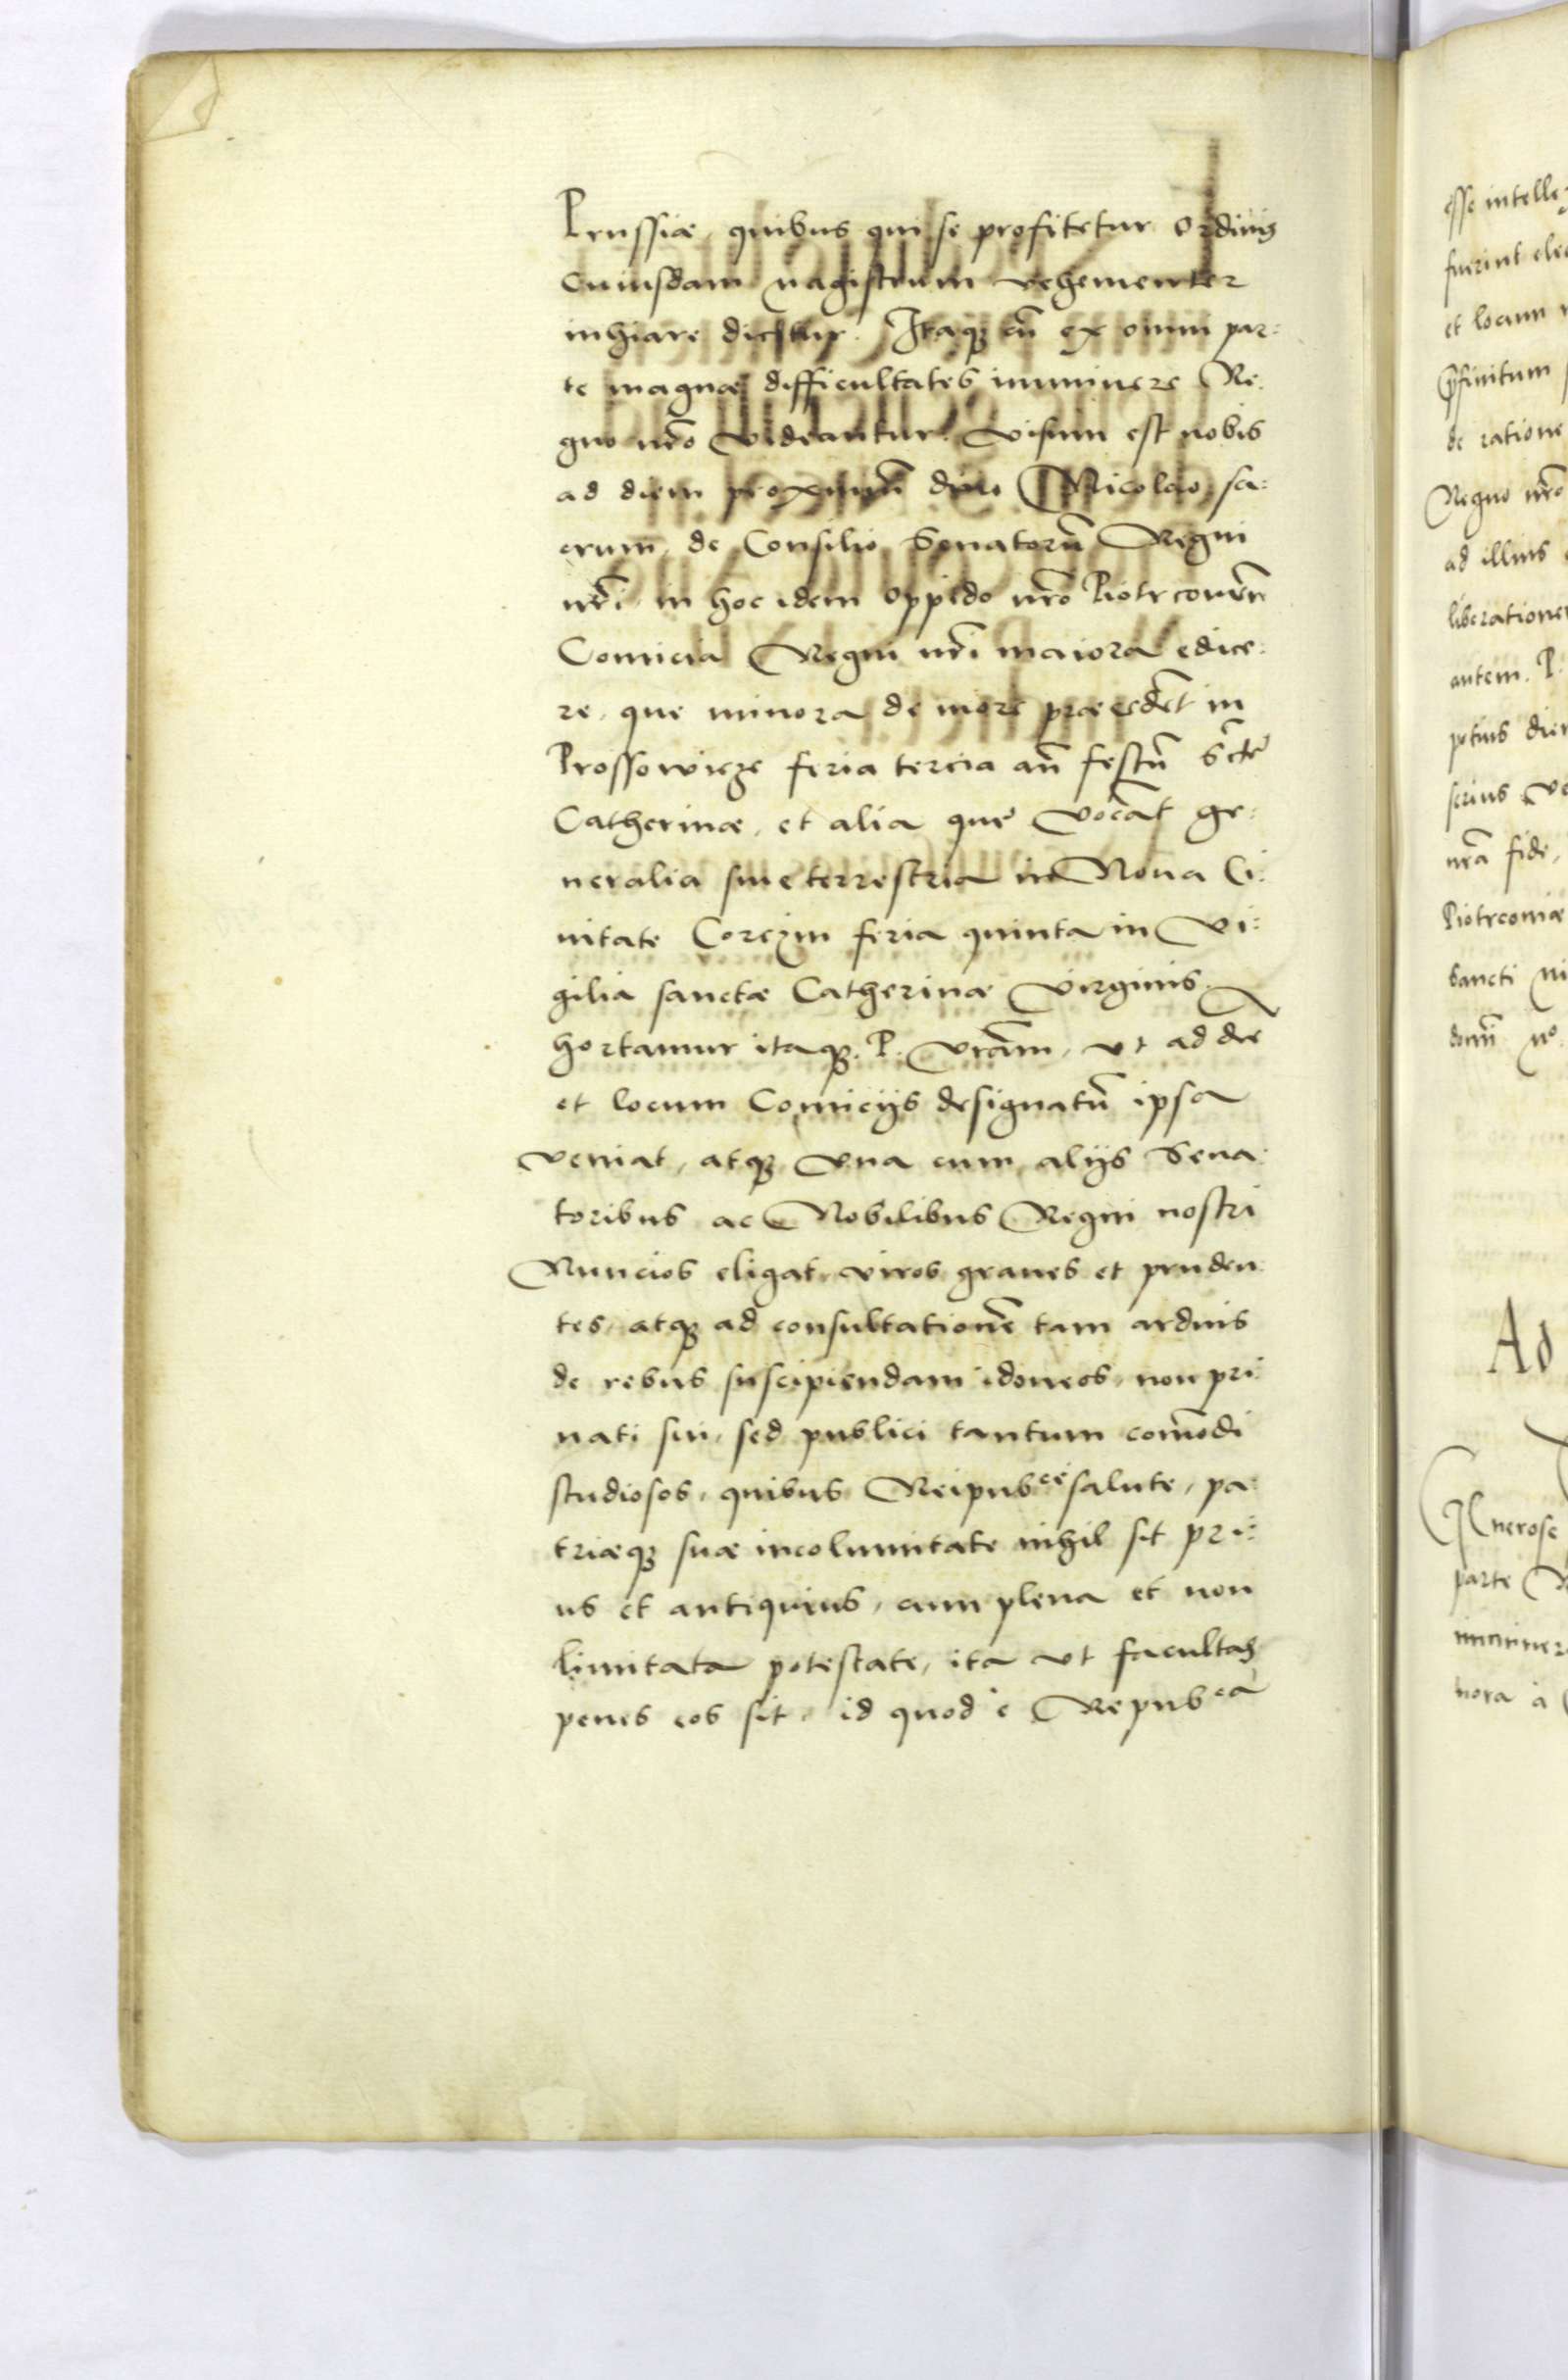 Prussiæ, quibus qui se profitetur Ordinis
cuiusdam magistrum vehementer
inhiare dicitur. Itaqꝫ cũ ex omni par:
te magnæ difficultates imminere Re:
gno nr̃o videantur. visum est nobis
ad diem proximũ diuo Nicolao sa:
crum, de Consilio Senatorũ Regni
nr̃i, in hoc idem oppido nr̃o Piotrcouień
Comicia Regni nr̃i maiora edice:
re, que minora de more præcedẽt in
Prossowicze feria tercia añ festũ S̃cte
Catherinæ, et alia que vocãt ge:
neralia siue terrestria in Noua Ci:
uitate Corczin feria quinta in vi:
gilia sanctæ Catherinæ virginis.
hortamur itaqꝫ. P. vr̃am, vt ad die
et locum Comicijs designatũ ipsa
veniat, atqꝫ vna cum alijs Sena
toribus ac Nobilibus Regni nostri
Nuncios eligat viros graues et pruden
tes, atqꝫ ad consultationẽ tam arduis
de rebus suscipiendam idoneos, non pri
uati sui, sed publici tantum com̃odi
studiosos, quibus Reipubce salute, pa
triæqꝫ suæ incolumitate nihil sit pri:
us et antiquius, cum plena et non
limitata potestate, ita vt facultas
penes eos sit, id quod e Repubca
esse intelle
fuerint elec
et locum
p̃finitum
de ratione
Regno nr̃o
ad illius
liberatione
autem. P.
potius die
serius ve
nr̃a fide,
Piotrconiæ
Sancti Ni
domĩ no
Ad
Generose
parte R
imminer
nora a